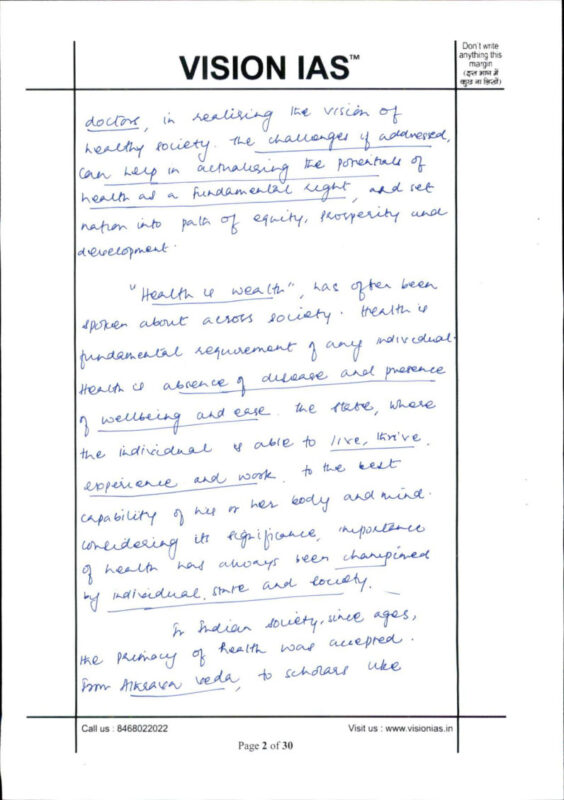 VISION IAS™
Don't write
anything this
margin
(इस भाग में
कुछ ना लिखें)
doctors, in realising the vision of
healthy society. The challenges if addressed,
can help in actualising the potentials of
health as a fundamental right, and set
nation into path of equity, prosperity and
development.
"Health is wealth", has often been
spoken about across society. Health is
fundamental requirement of any individual.
Health is absence of disease and presence
of wellbeing and ease. The state, where
the individual is able to live, thrive,
experience and work, to the best
capability of his or her body and mind.
Considering its significance, importance
of health has always been champined
by individual, state and society.
In Indian society, since ages,
the primacy of health was accepted.
From Atharava veda, to scholars like
Call us : 8468022022
Visit us : www.visionias.in
Page 2 of 30